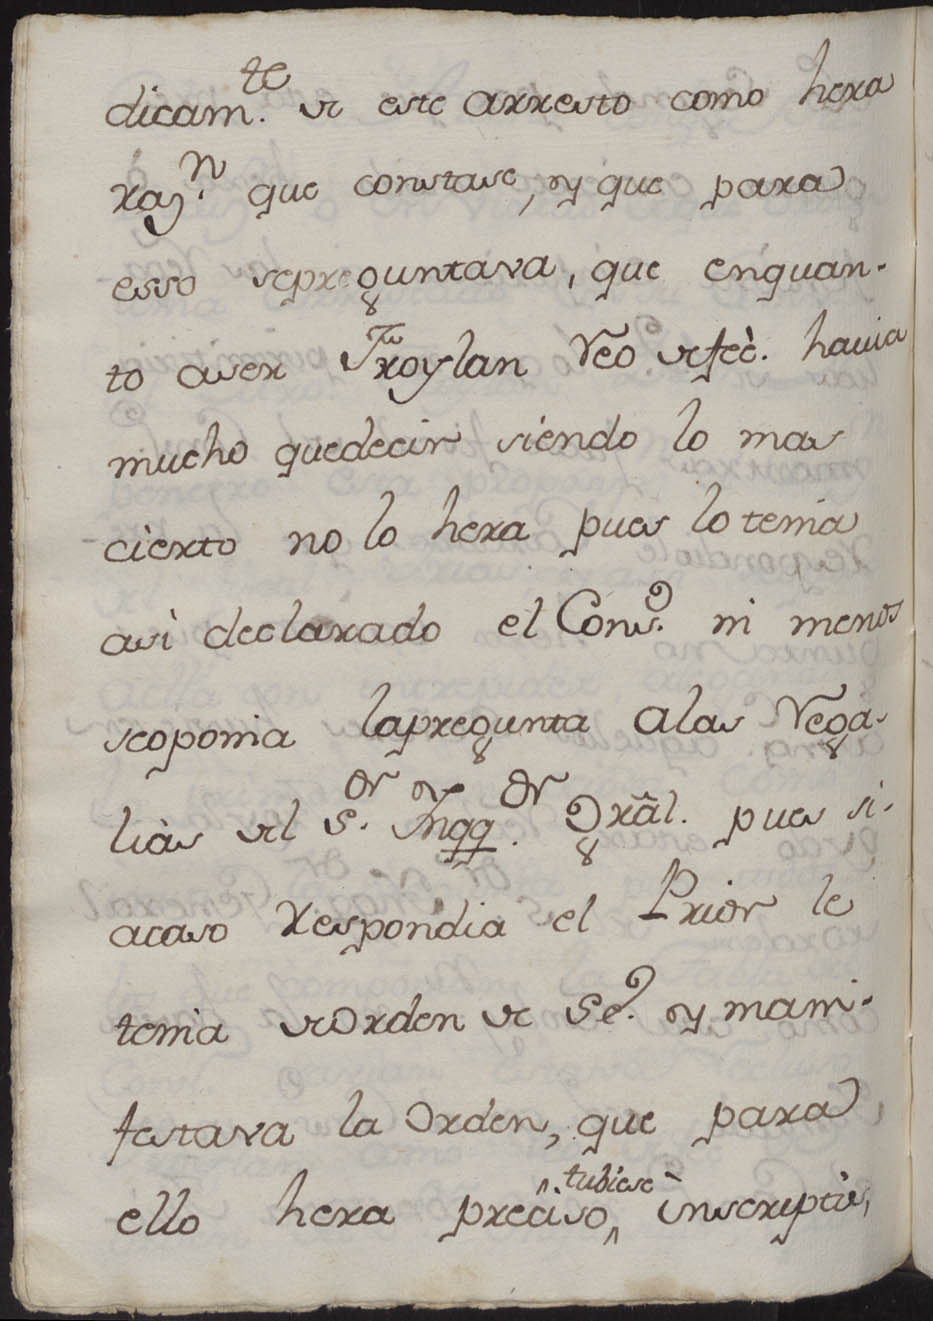 dicam.te de este arresto como hera
raz.n que constase, y que para
esso sepreguntava, que enquan-
to aser Froylan Reo defeè. havia
mucho quedecir siendo lo mas
cierto no lo hera pues lo tenia
asi declarado el Cons.o ni menos
seoponia lapregunta alas Rega-
lias del S.or Ynqq.or Grâl. pues si-
acaso respondia el Prior le
tenia deorden de Se.o y mani-
festava la Orden, que para
ello hera preciso, tubiese inscriptis,